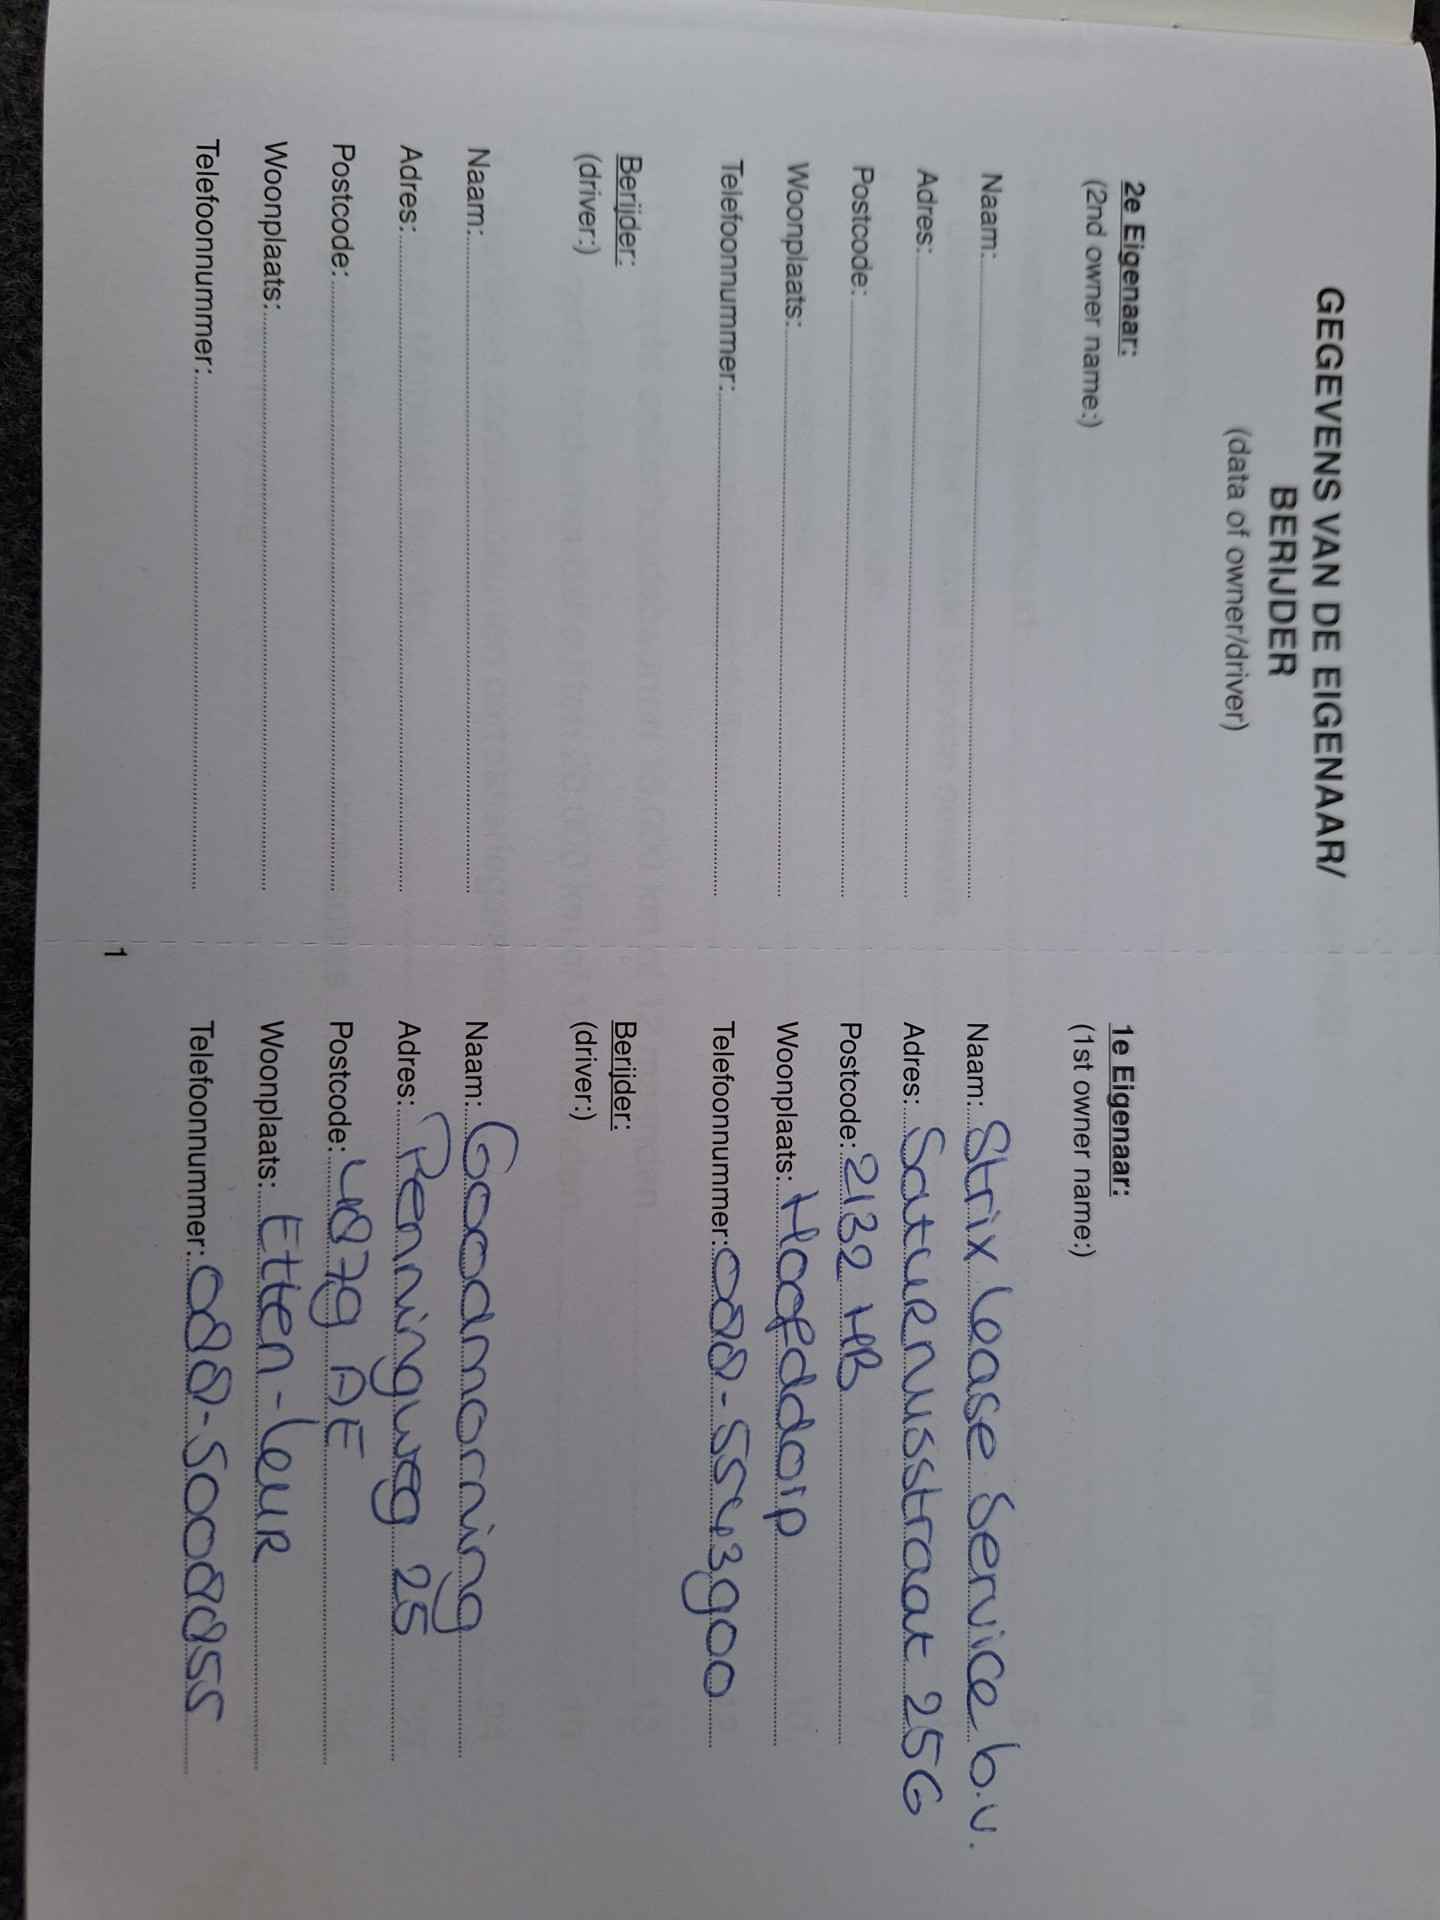 GEGEVENS VAN DE EIGENAAR/
BERIJDER
(data of owner/driver)
1e Eigenaar:
(1st owner name:)
Naam: Strix Lease Service b.v.
Adres: Saturnusstraat 25G
Postcode: 2132 HB
Woonplaats: Hoofddorp
Telefoonnummer: 088-5543900
Berijder:
(driver:)
Naam: Goodmorning
Adres: Penningweg 25
Postcode: 4879 AE
Woonplaats: Etten-leur
Telefoonnummer: 088-5008855
2e Eigenaar:
(2nd owner name:)
Naam:
Adres:
Postcode:
Woonplaats:
Telefoonnummer:
Berijder:
(driver:)
Naam:
Adres:
Postcode:
Woonplaats:
Telefoonnummer:
1